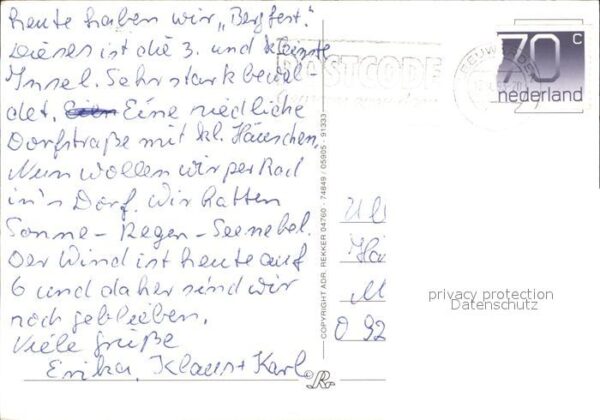 heute haben wir „Bergfest."
Dieses ist die 3. und kleinste
Insel. Sehr stark bewal-
det. Eine niedliche
Dorfstraße mit kl. Häuschen.
Nun wollen wir per Rad
in's Dorf. Wir hatten
Sonne - Regen - Seenebel.
Der Wind ist heute auf
6 und daher sind wir
noch geblieben.
Viele Grüße
Erika, Klaus + Karl
POSTCODE
70 c
nederland
COPYRIGHT ADR. REKKER 04760 - 74849 / 05905 - 91333
Ull
Hä
M
O 92
privacy protection
Datenschutz
©R